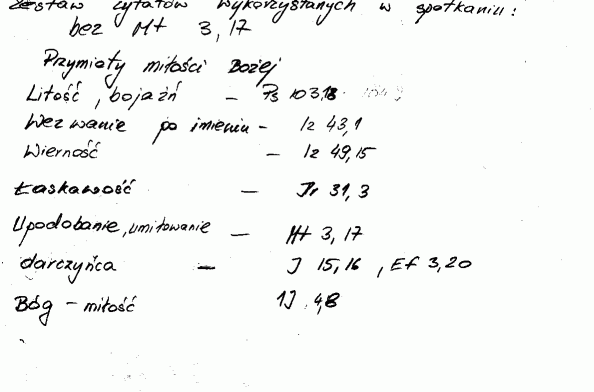 Zestaw cytatów wykorzystanych w spotkaniu:
bez Mt 3,17
Przymioty miłości Bożej
Litość, bojaźń – Ps 103,18
Wezwanie po imieniu – Iz 43,1
Wierność – Iz 49,15
Łaskawość – Jr 31,3
Upodobanie, umiłowanie – Mt 3,17
darczyńca – J 15,16, Ef 3,20
Bóg – miłość 1J 4,8